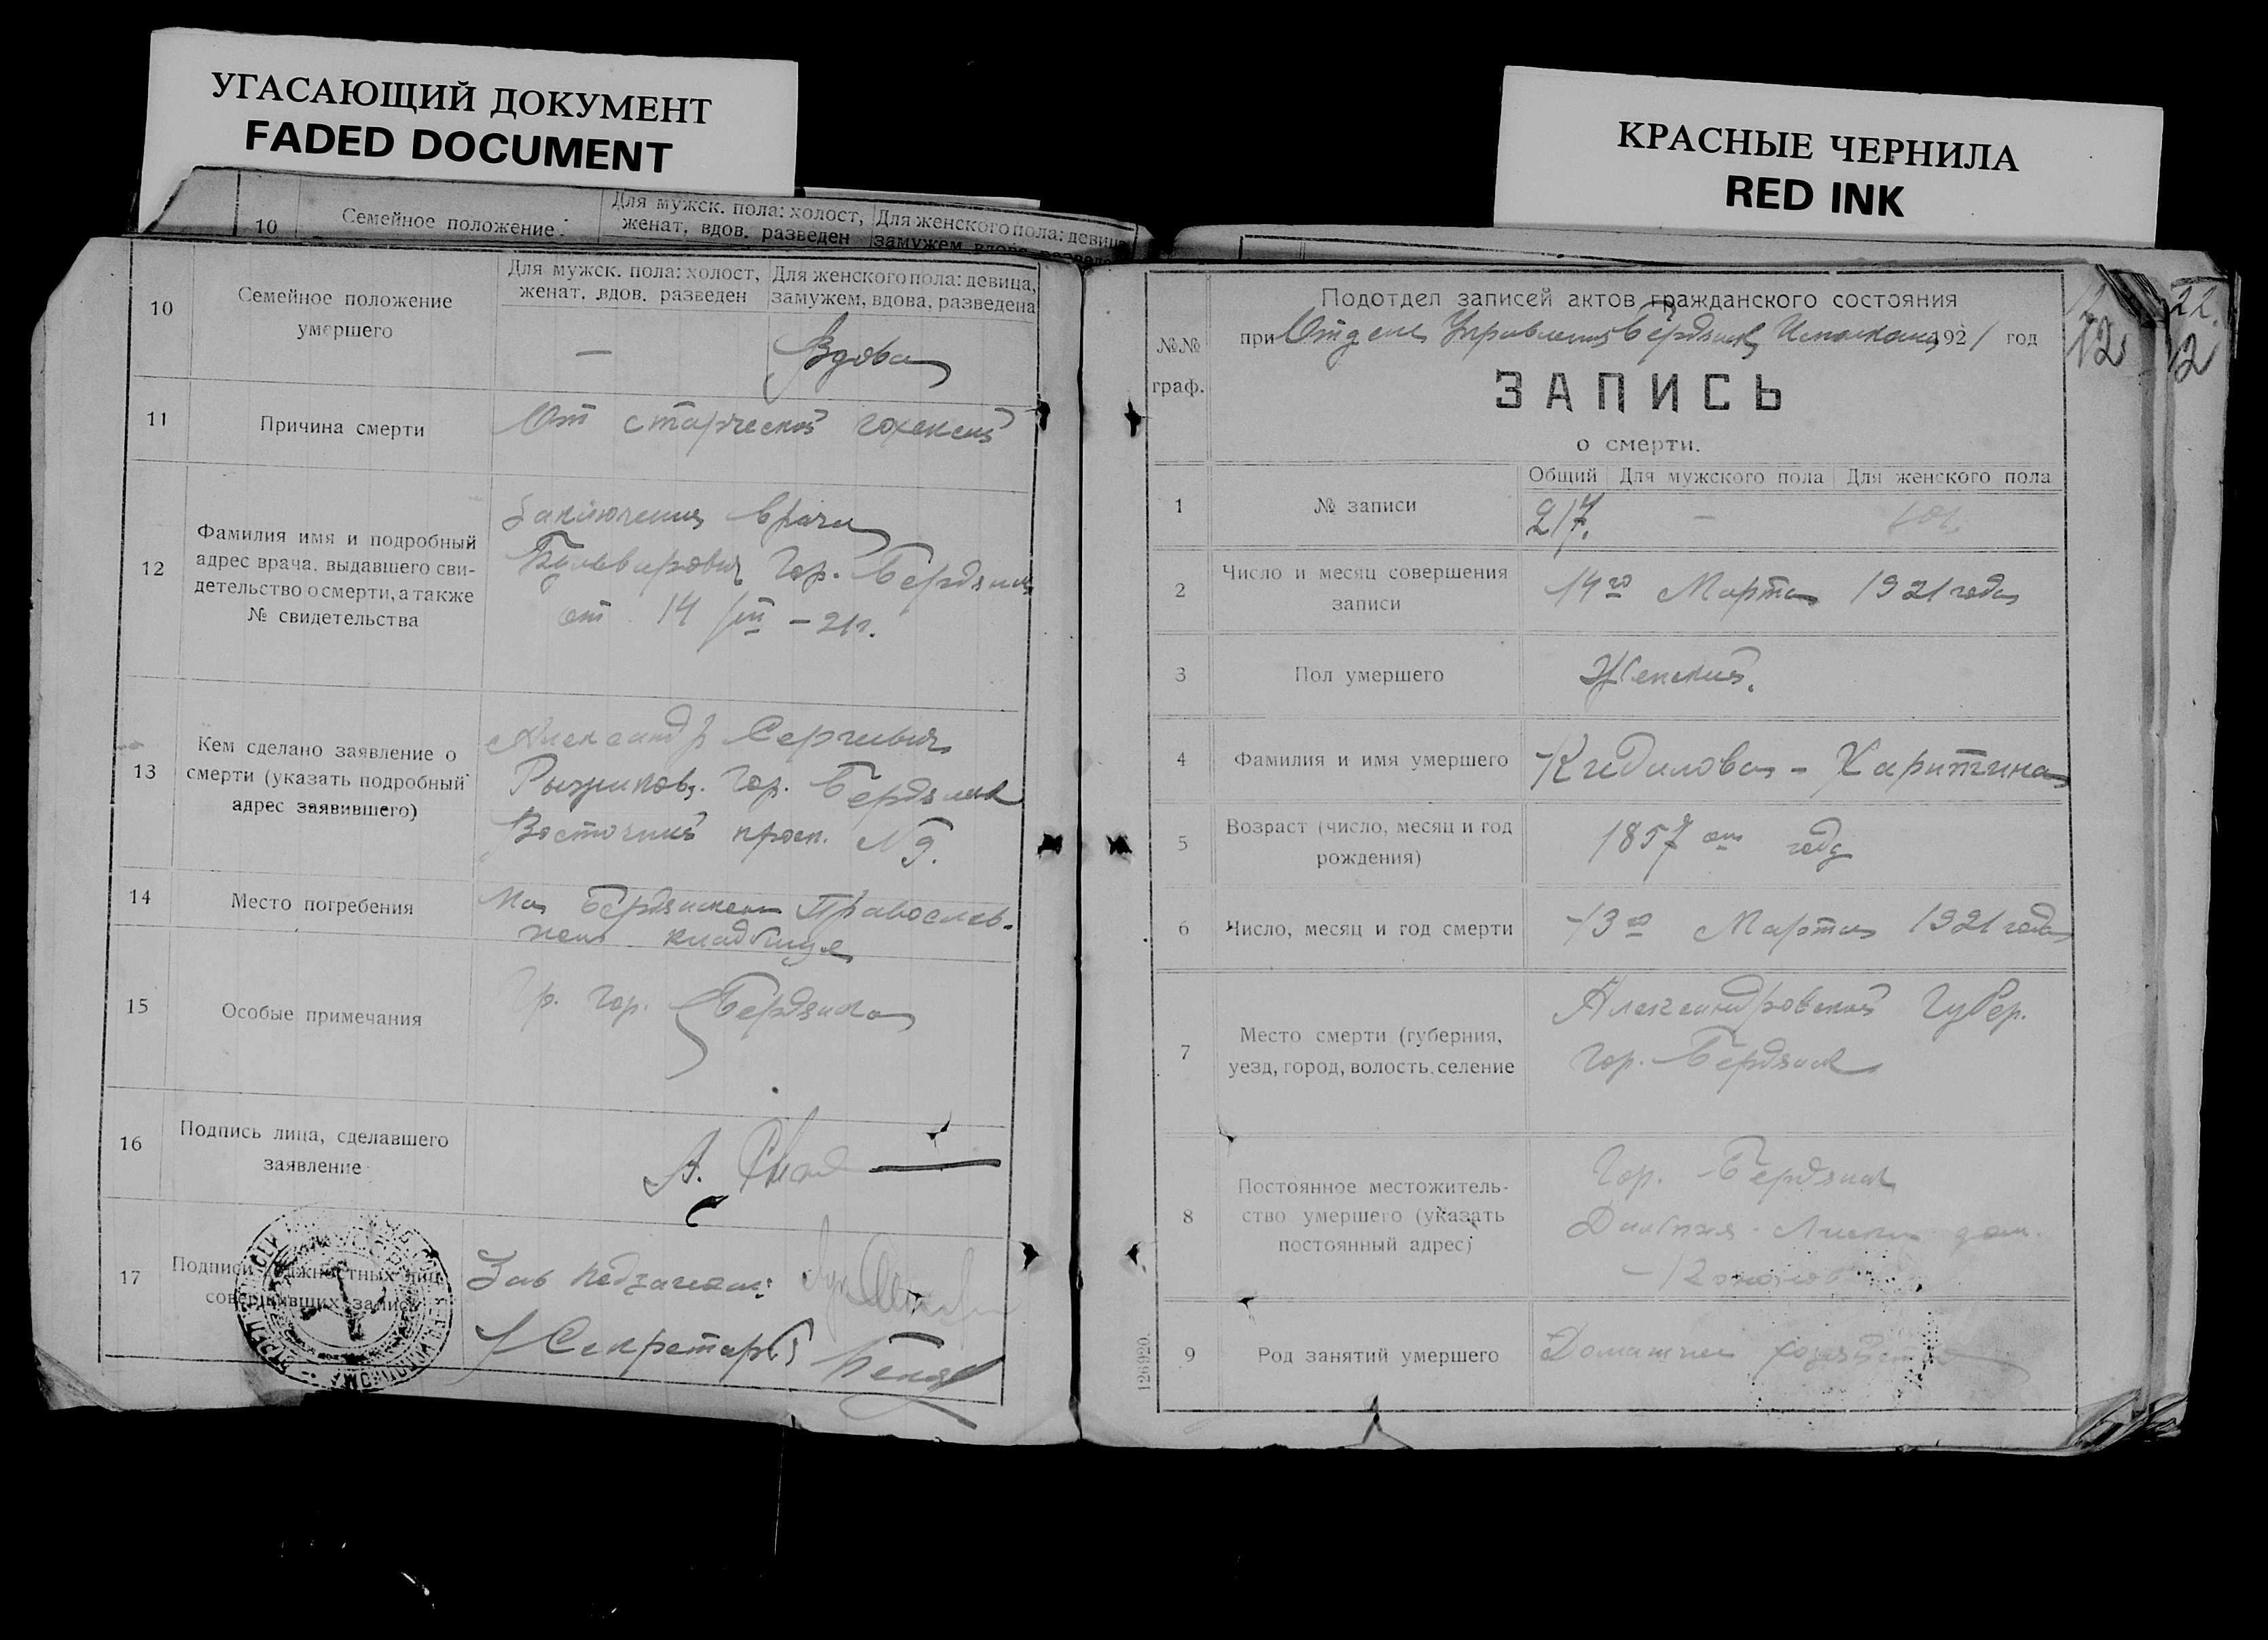 УГАСАЮЩИЙ ДОКУМЕНТ
FADED DOCUMENT
КРАСНЫЕ ЧЕРНИЛА
RED INK
10
Семейное положение
Для мужск. пола: холост,
женат, вдов. разведен
Для женского пола: девица
замужем вдова
10
Семейное положение
умершего
Для мужск. пола: холост,
женат. вдов. разведен
—
Для женского пола: девица,
замужем, вдова, разведена
Вдова
11
Причина смерти
От старческой
12
Фамилия имя и подробный
адрес врача. выдавшего сви-
детельство о смерти, а также
№ свидетельства
Заключения врача
Гор. Бердянск
от 14/III – 21 г.
13
Кем сделано заявление о
смерти (указать подробный
адрес заявившего)
Александр Сергиевич
Рыжиков, Гор. Бердянск
Восточный просп. № 9.
14
Место погребения
На Бердянском Православ-
ном кладбище
15
Особые примечания
Гр. гор. Бердянска
16
Подпись лица, сделавшего
заявление
А.
17
Подписи должностных лиц
совершивших запись
Зав
Секретарь
Подотдел записей актов гражданского состояния
при Отделе Управления Бердянск. Исполкома 1921 год
№№
граф.
ЗАПИСЬ
о смерти.
1
№ записи
Общий
Для мужского пола
Для женского пола
217.
—
2
Число и месяц совершения
записи
14го Марта 1921 года
3
Пол умершего
Женский.
4
Фамилия и имя умершего
Харитина
5
Возраст (число, месяц и год
рождения)
1857 ом году
6
Число, месяц и год смерти
13го Марта 1921 года
7
Место смерти (губерния,
уезд, город, волость, селение
Александровской Губер.
Гор. Бердянск
8
Постоянное местожитель-
ство умершего (указать
постоянный адрес)
Гор. Бердянск
дом
9
Род занятий умершего
Домашнее хозяйство
126920.
12
12
22.
12